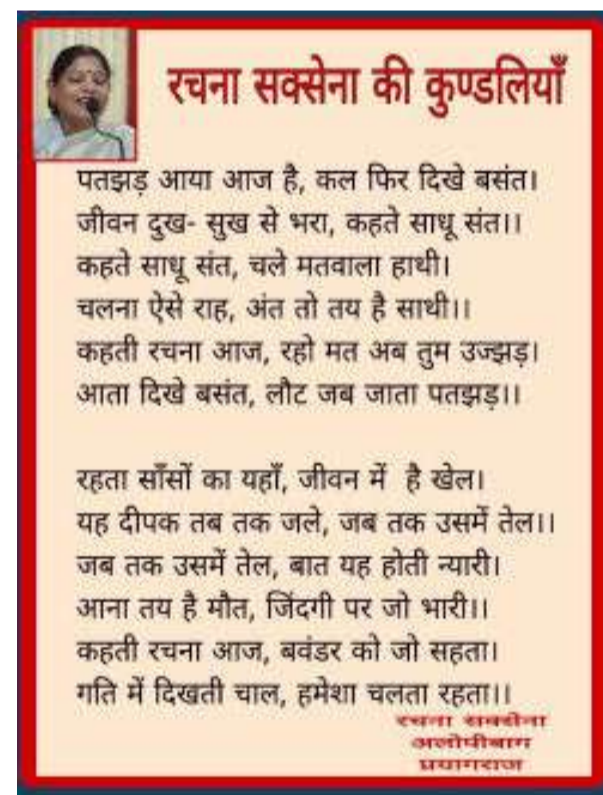 रचना सक्सेना की कुण्डलियाँ
पतझड़ आया आज है, कल फिर दिखे बसंत।
जीवन दुख- सुख से भरा, कहते साधू संत।।
कहते साधू संत, चले मतवाला हाथी।
चलना ऐसे राह, अंत तो तय है साथी।।
कहती रचना आज, रहो मत अब तुम उज्झड़।
आता दिखे बसंत, लौट जब जाता पतझड़।।
रहता साँसों का यहाँ, जीवन में है खेल।
यह दीपक तब तक जले, जब तक उसमें तेल।।
जब तक उसमें तेल, बात यह होती न्यारी।
आना तय है मौत, जिंदगी पर जो भारी।।
कहती रचना आज, बवंडर को जो सहता।
गति में दिखती चाल, हमेशा चलता रहता।।
रचना सक्सेना
अलोपीबाग
प्रयागराज